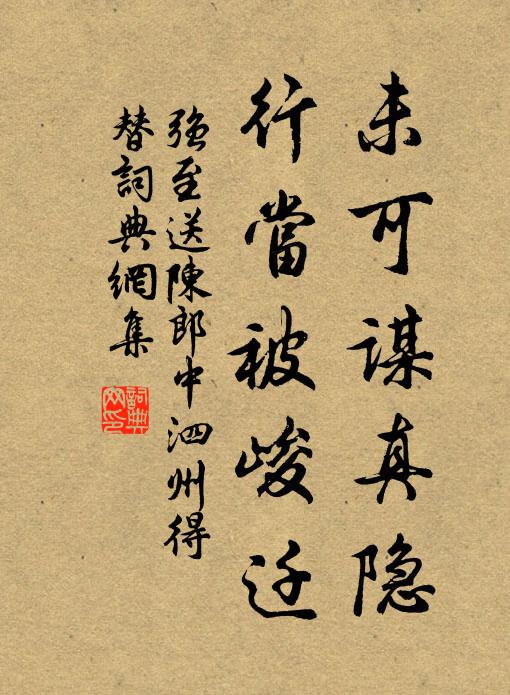 未可谋真隐
行當被峻迁
強至送陳郎中泗州得
替詞典網集
詞典
网印